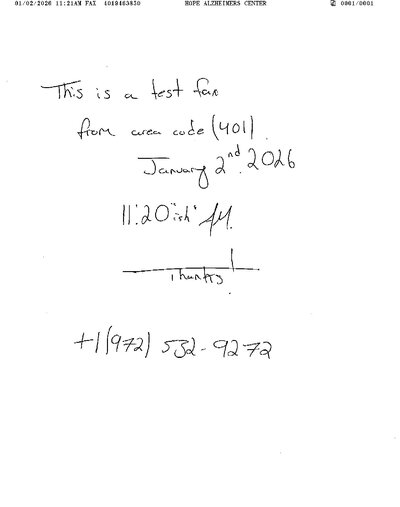 01/02/2026 11:21AM FAX 4019463850 HOPE ALZHEIMERS CENTER 0001/0001
This is a test fax
from area code (401)
January 2nd. 2026
11:20 "ish" AM.
Thanks
+1(972) 532-9272